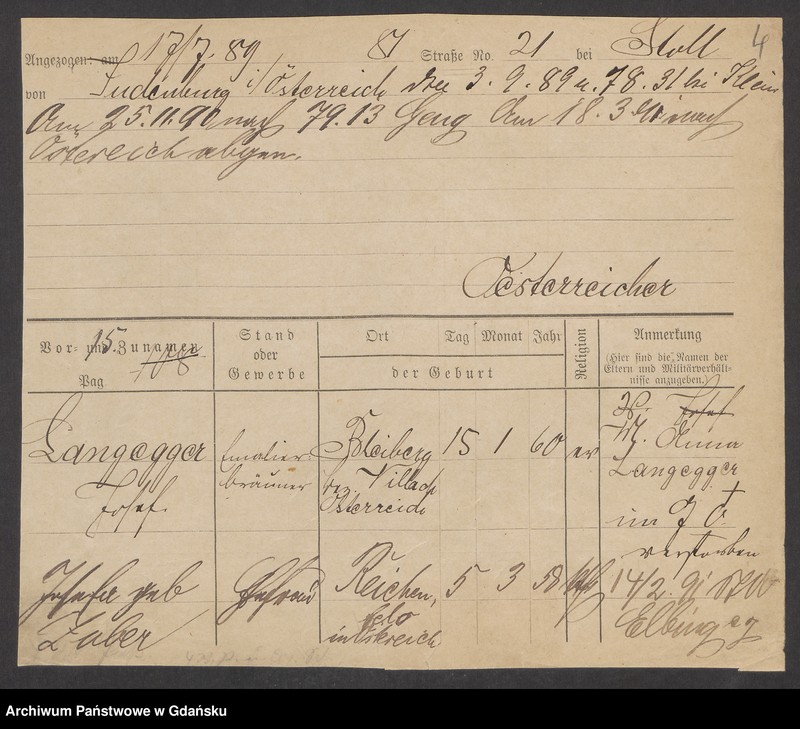 Angezogen: am 17/7. 89 87 Straße No. 21 bei Stoll 4
von Judenburg i/Österreich den 3. 9. 89 n. 78. 31 bei Klein
Am 25. 11. 90 nach 79. 13 Am 18. 3 nach
Östereich abgem.
Oesterreicher
Vor- und Zunamen
15.
Pag
Stand
oder
Gewerbe
Ort Tag Monat Jahr
der Geburt
Religion
Anmerkung
(Hier sind die Namen der
Eltern und Militärverhält-
nisse anzugeben.)
Langegger
Josef.
Bleiberg
bei Villach
Österreich
15 1 60
ev
V. Josef
M. Anna
Langegger
im J
verstorben
Josefa geb
Zuber
Ehefrau
Reichen,
feld
in Östreich.
5 3 58
kath
14/2. 91
Elbing
Archiwum Państwowe w Gdańsku